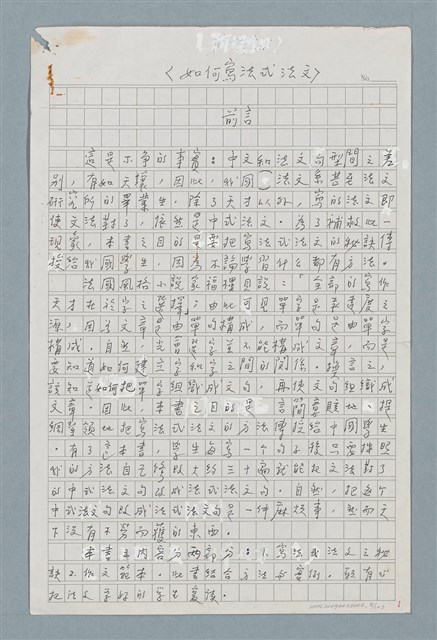 〈如何寫法式法文〉
No.
前言
這是不爭的事實：中文和法文句型間之差
別，有如天壤，因此，我國法文系甚至法文
研究所的畢業生，除了天才以外，寫的法文即
使文法對了，依然是中式法文。為了補救此一
現象，本書之目的是要把寫法式法文的秘訣傳
授給我國學生，因為不論學習什么都有方法。
法國風格小說家福樓貝說：「全部的寫作
天才在於字之選擇」由此可見單字是表達度之
源，因為文章是由單句構成，而單句是由單字
構成。自然，光會單字並不能構成文章，而是
要知道如何建立字和字之間的關係。換言之，
該知道如何把單字組織成文句，再使文句組織成
文章。因此，本書之目的是言簡意賅地、提
綱挈領地把寫法式法文的方法傳授給中國學生
。有了這本書，學生每寫一個句子後只要按照
我的方法自己修改大約三十遍就能把文法對了
的中式法文句改成法式法文句。自然，把每個
中式法文句改成法式法文句是一件麻煩事，然而天
下沒有不勞而獲的東西。
本書之內容分兩部分：1.寫法式法文之秘
訣 2.作文範本。此書結合方法與實例。願有心
把法文學好的學生愛讀。
1